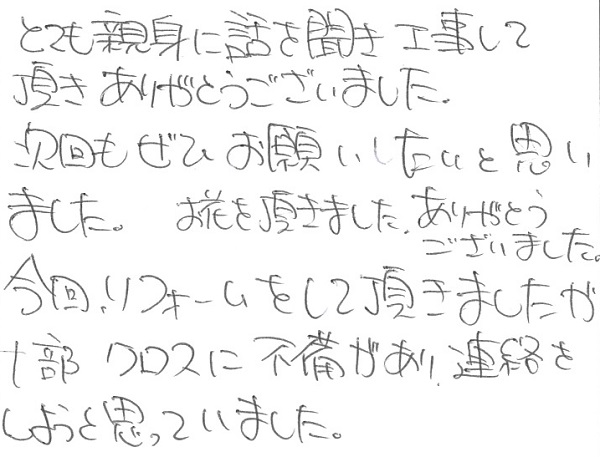 とても親身に話を聞き工事して
頂きありがとうございました。
次回もぜひお願いしたいと思い
ました。 お花を頂きました。ありがとう
ございました。
今回、リフォームをして頂きましたが
十部 クロスに不備があり、連絡を
しようと思っていました。